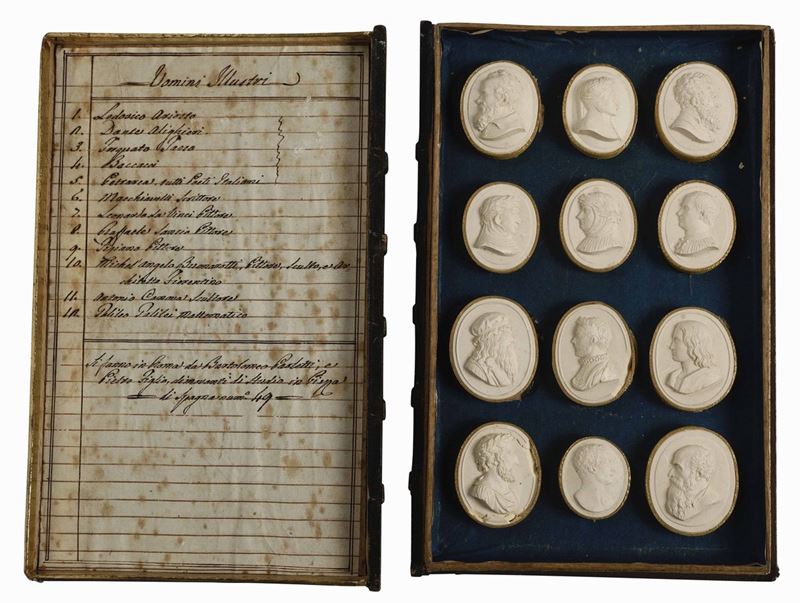 Uomini Illustri
1. Lodovico Ariosto
2. Dante Alighieri
3. Torquato Tasso
4. Boccacci
5. Petrarca, tutti Poeti Italiani
6. Macchiavelli Scrittore
7. Leonardo da Vinci Pittore
8. Raffaele Sanzio Pittore
9. Tiziano Pittore
10. Michel'angelo Buonarotti, Pittore, Sculto, e Ar
chitetto Fiorentino
11. Antonio Canova Scultore
12. Galileo Galilei Mattematico
Si fanno in Roma da Bartolomeo Paoletti, e
Pietro Figlio, dimoranti di Studio in Piazza
di Spagna num.º 49